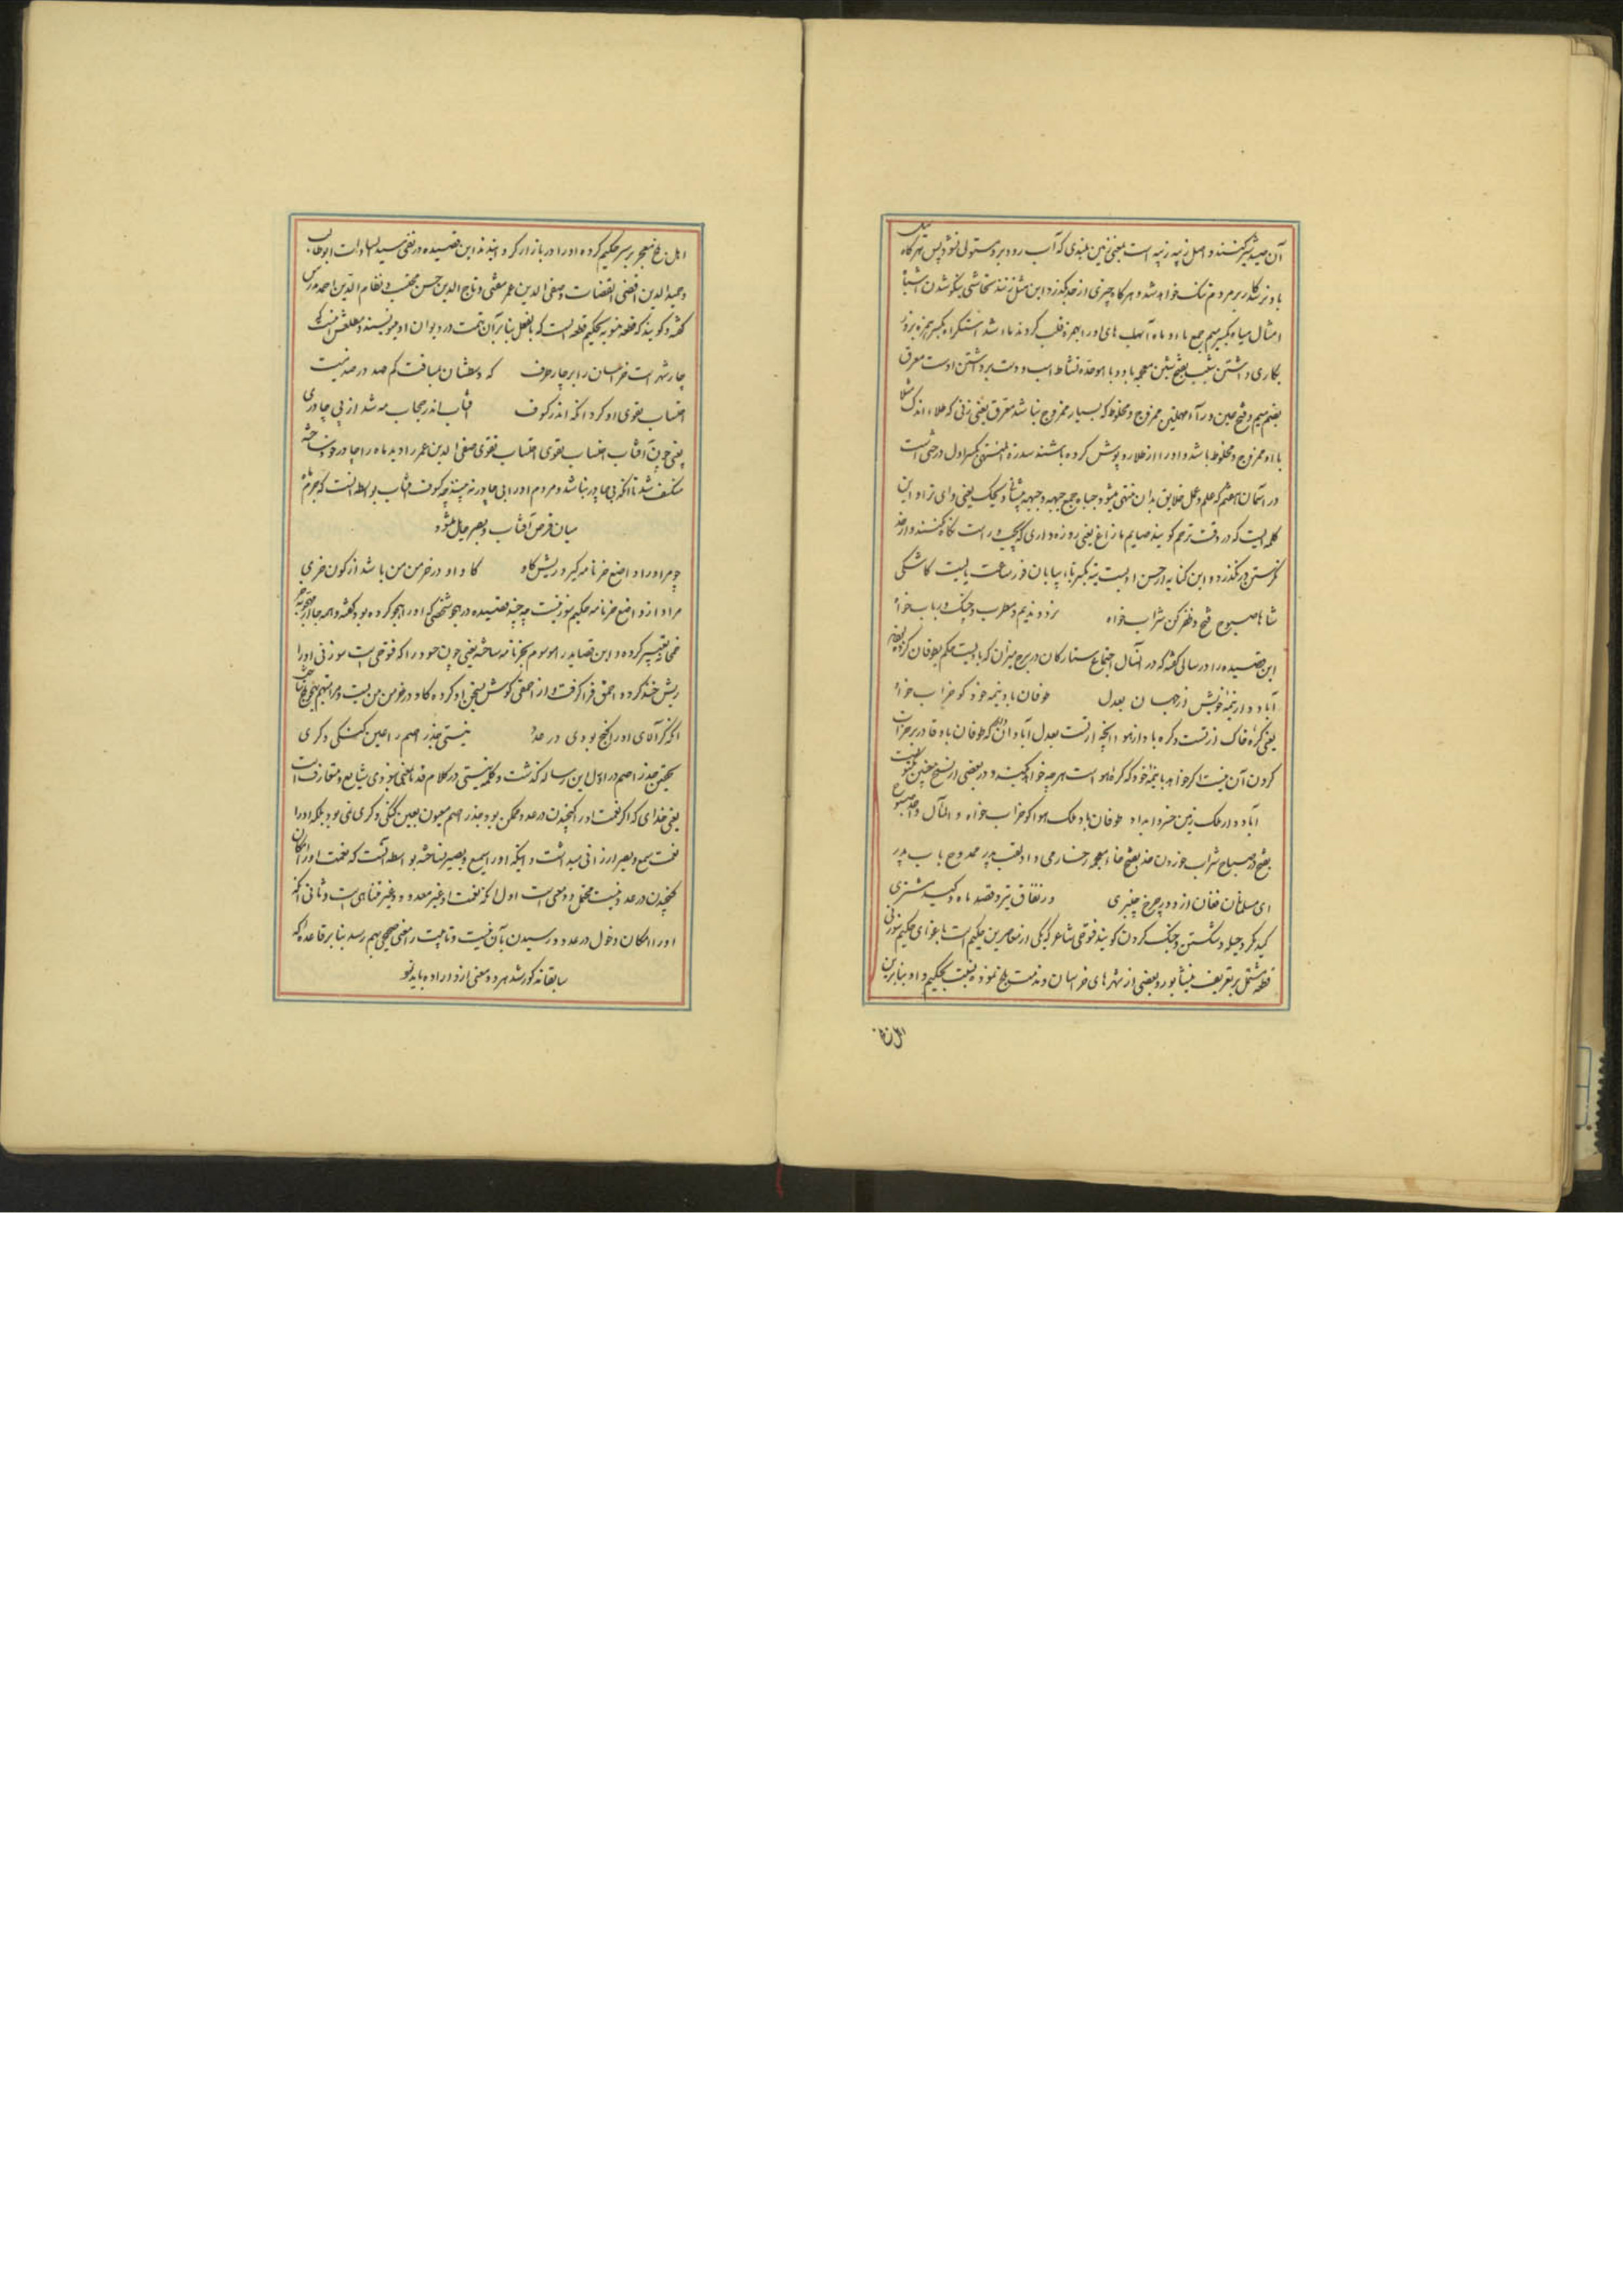 آن صید شیر کنند و اصل زبیه زپیه است یعنی زمین بلندی که آب رود بر و مستولی نشود پس هرگاه
باد بر شکار بر مردم تنگ خواهد شد و هر گاه چیزی از حد بگذرد این مثل زنند تحاشی یکسو شدن اشباه
امثال میاه بکسر میم جمع ماء و ماه آنهاب های اورا بهمزه قلب کردند ماء شد استکراه بکسر همزه بزور
بکاری داشتن شبب بفتح شین معجمه با دو با موحده نشاط اسب و دست برداشتن اوست معرق
بضم میم و فتح عین و رآء مهملتین ممزوج و مخلوط که بسیار ممزوج نباشد معرق یعنی زنی که طلاء اندک مثلا
با او ممزوج و مخلوط باشد و او را از طلا روپوش کرده باشند سدرة المنتهی بکسر اول درختی است
در آسمان هفتم که علم و عمل خلایق بدان منتهی میشود جباه جمع جبهه و جبهه پیشانی ویحک یعنی وای بر تو این
کلمه ایست که در وقت ترحم گویند صایم ما زاغ یعنی روزه داری که بچپ و راست نگاه نکنند و از حد
نگرستن در نگذرد و این کنایه از حسن ادبست تیه بکسر تاء بیابان فوز ساعت بایست کاشکی
شاها صبوح فتح و ظفر کن شراب خواه    نرد و ندیم و مطرب و چنگ و رباب خواه
این قصیده را در سالی گفته که در آنسال اجتماع ستارگان در برج میزان که بادیست حکم بطوفان کرده بودند
آباد دار نیمه خویش از جهان بعدل    طوفان باد نیمه خود گو خراب خواه
یعنی کره خاک از تست و کره باد از هوا آنچه از تست بعدل آبادان دار که طوفان باد قادر بر خراب
کردن آن نیست اگر خواهد با نیمه خود که کره هواست هر چه خواهد بکند و در بعضی از نسخ معنیش مکتوب
آباد دار ملک زمین خسروا بداد    طوفان باد ملک هوا گو خراب خواه    و المآل واحد صبوح
بفتح در صباح شراب خوردن خد بفتح خاء معجمه رخسار می داد لقب پدر ممدوح باب پدر
ای مسلمانان فغان از دور چرخ چنبری    وز نفاق تیر و قصد ماه و کید مشتری
کید مکر و حیله و شکستن و جنگ کردن گویند فتوحی شاعر که یکی از معاصرین حکیم است باغوای حکیم سوزنی
قطعه مشتمل بر تعریف نیشابور و بعضی از شهرهای خراسان و مذمت بلخ نموده نسبت بحکیم داد بنابرین
اهل بلخ
اهل بلخ معجر بر سر حکیم کرده او را در بازار گردانیدند این قصیده در نفی سید السادات ابوطالب
و حمید الدین اقضی القضات و صفی الدین عمر مفتی و تاج الدین حسن محتسب و نظام الدین احمد مدرس
گفته و گویند که قطعه منسوب بحکیم قطعه ایست که بالفعل بنابر آن تهمت در دیوان او مینویسند و مطلعش اینست که
چار شهر است خراسان را بر چار طرف    که وسطشان بمسافت کم صد در صد نیست
احتساب تقوی او کرد آنکه اندر کسوف    آفتاب اندر حجاب مه شد از بی چادری
یعنی چون آفتاب احتساب تقوی احتساب تقوی صفی الدین عمر را دید ماه را چادر خود ساخته
منکسف شد تا آنکه بی چادر نباشد و مردم او را بی چادر نه بینند چه کسوف آفتاب بواسطه آنست که جرم ماه
میان قرص آفتاب و بصر حایل میشود
چو مرا او را واضع خر نامه گیرد ریش گاو    گاو او در خرمن من باشد از کون خری
مراد از واضع خرنامه حکیم سوزنیست چه چند قصیده در هجو شخصی که او را هجو کرده بود گفته و همه جا از هجو بخر
خمخانه تعبیر کرده و این قصاید را موسوم بخرنامه ساخته یعنی چون حسود را که فتوحی است سوزنی او را
ریش خند کرده و احمق فرا گرفت و از احمقی گوش بسخن او کرده گاو در خرمن من بست و مرا متهم بهجو بلخ ساخت
آنکه گر آلای او را گنج بودی در عدد    نیستی جذر اصم را عین گنگی و کری
تحقیق جذر اصم در اول این رساله گذشت و کلمه نیستی در کلام قدما بمعنی نبودی شایع و متعارف است
یعنی خدای که اگر نعمت او را گنجیدن در عدد ممکن بود جذر اصم معیوب بعیب گنگی و کری نمی بود بلکه او را
نعمت سمع و بصر ارزانی میداشت و اینکه او را سمیع و بصیر نساخته بواسطه آنست که نعمت او را امکان
گنجیدن در عدد نیست محتمل دو معنی است اول آنکه نعمت او غیر معدود و غیر متناهی است و ثانی آنکه
او را امکان دخول در عدد و رسیدن بآن نیست و تا بیت را معنی صحیحی بهم رسد بنابر قاعده که
سابقا مذکور شد هر دو معنی از و اراده باید نمود